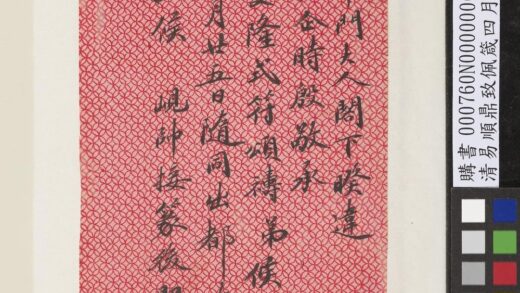 購書 000760N0000000
清易順鼎致佩箴四月
門大人閣下睽違
企時殷敬承
隆式符頌禱弟候
月廿五日隨同出都
侯 峴帥接篆後